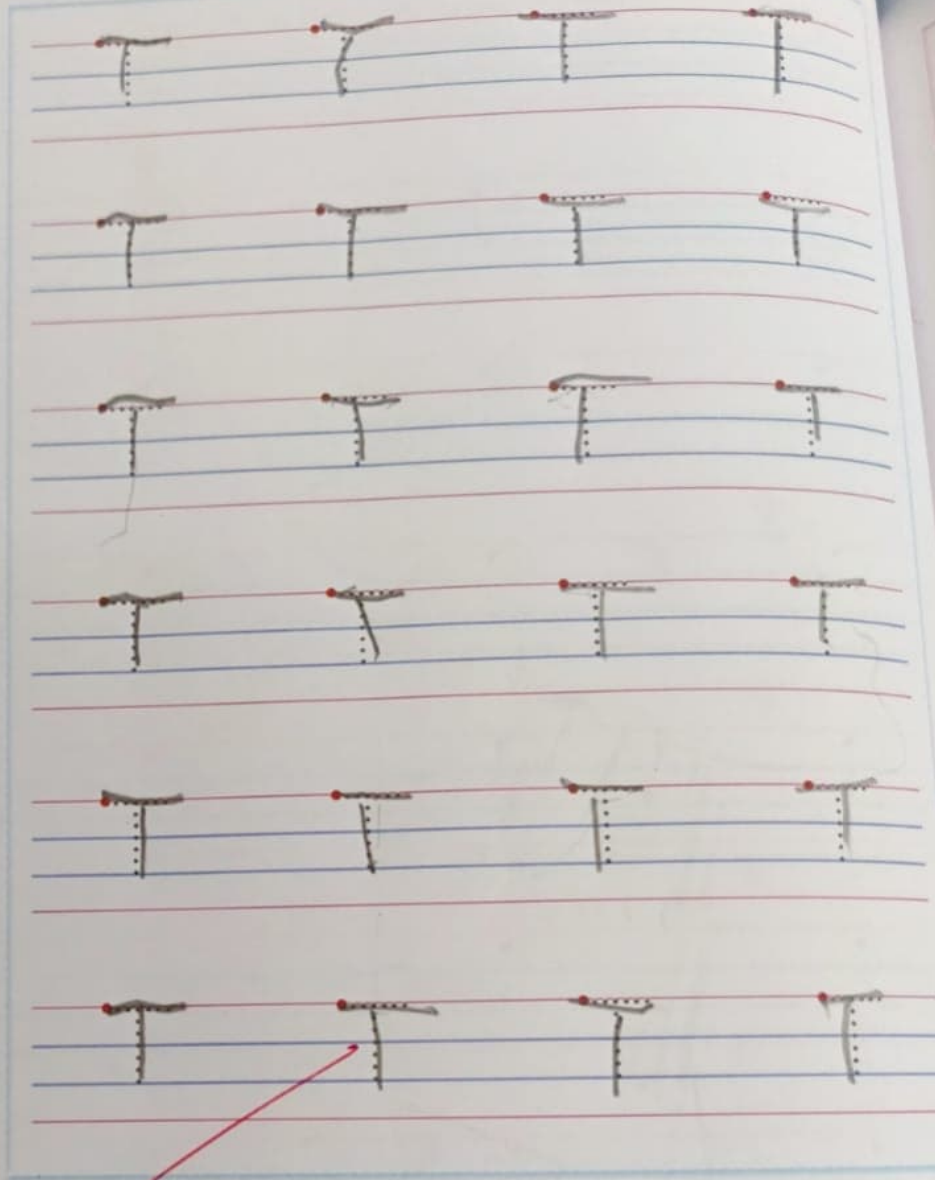 T T T T
T T T T
T T T T
T T T T
T T T T
T T T T